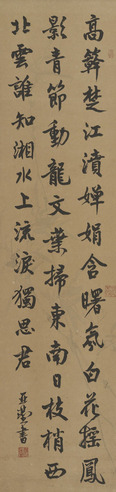 高簳楚江濆嬋娟含曙氛白花搖鳳
影青節動龍文葉掃東南日枝捎西
北雲誰知湘水上流淚獨思君